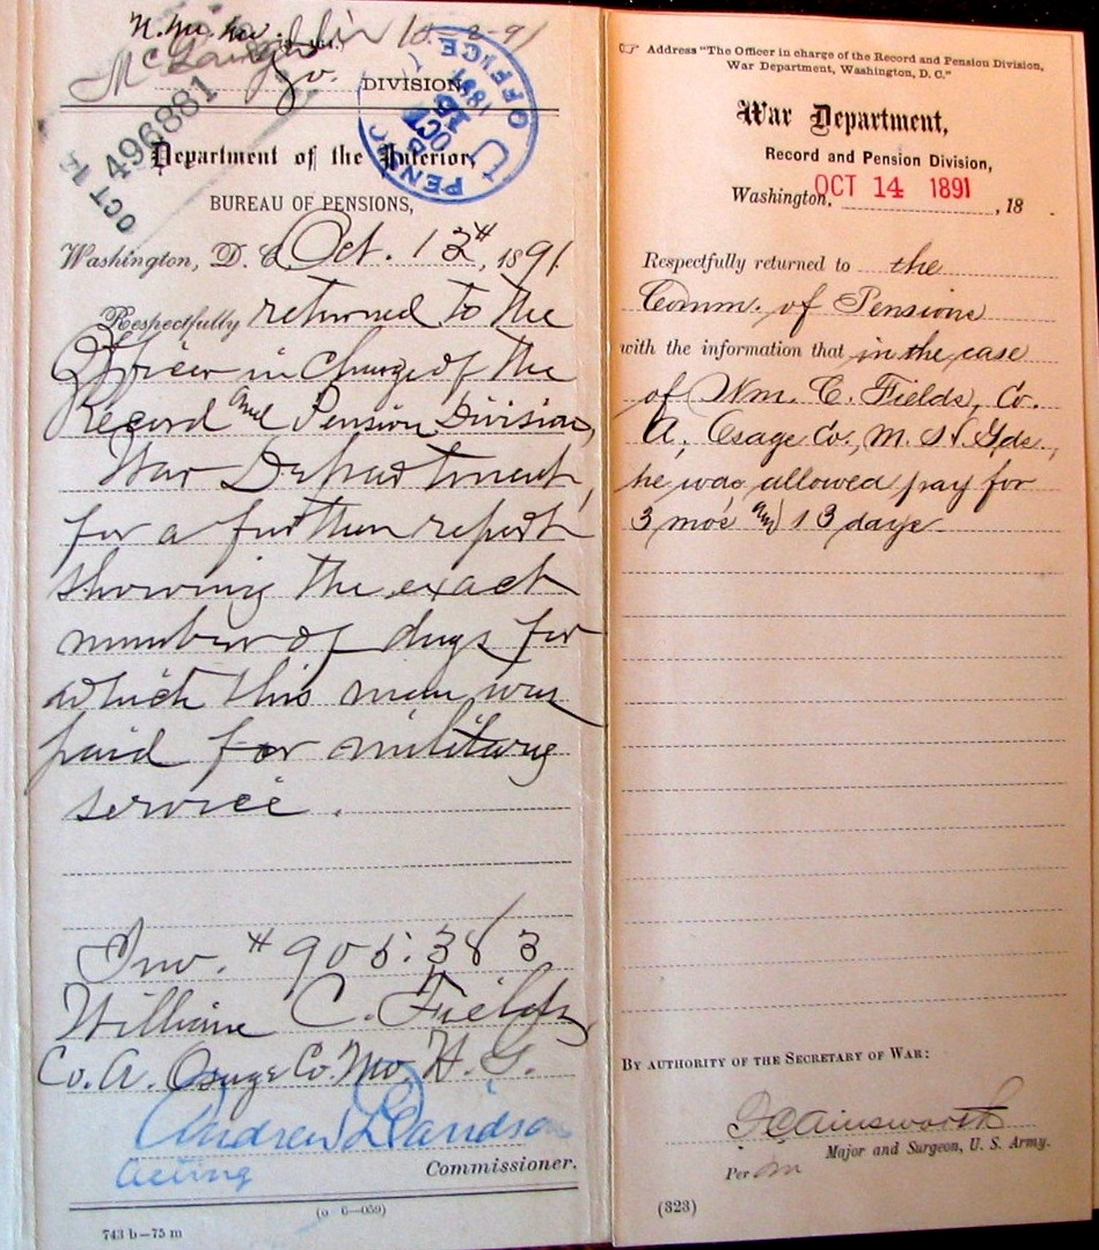 10-2-91
DIVISION,
496881
OCT 14
PENS OFFICE
OCT
1891
U
Department of the Interior,
BUREAU OF PENSIONS,
Washington, D. C. Oct. 12", 1891.
Respectfully returned to the
Officer in Charge of the
Record and Pension Division,
War Department,
for a further report
showing the exact
number of days for
which this man was
paid for military
service.
Inv. # 905.383
William C. Fields
Co. A. Osage Co. Mo. H. G.
Andrew Davidson
Acting
Commissioner.
(o 6—059)
743 b—75 m
Address "The Officer in charge of the Record and Pension Division,
War Department, Washington, D. C."
War Department,
Record and Pension Division,
Washington, OCT 14 1891, 18 .
Respectfully returned to the
Comm. of Pensions
with the information that in the case
of Wm. C. Fields, Co.
A, Osage Co., M. Gds.,
he was allowed pay for
3 mos and 13 days
BY AUTHORITY OF THE SECRETARY OF WAR:
F C Ainsworth
Major and Surgeon, U. S. Army.
Per m
(323)